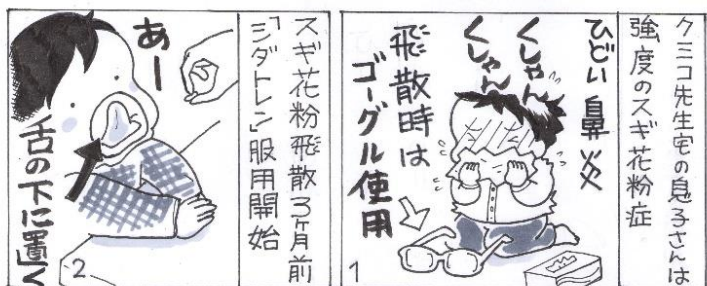 クミコ先生宅の息子さんは
強度のスギ花粉症
ひどい鼻炎
くしゃん
くしゃん
飛散時は
ゴーグル使用
1
スギ花粉飛散3ヶ月前
「シダトレン」服用開始
あー
舌の下に置く
2